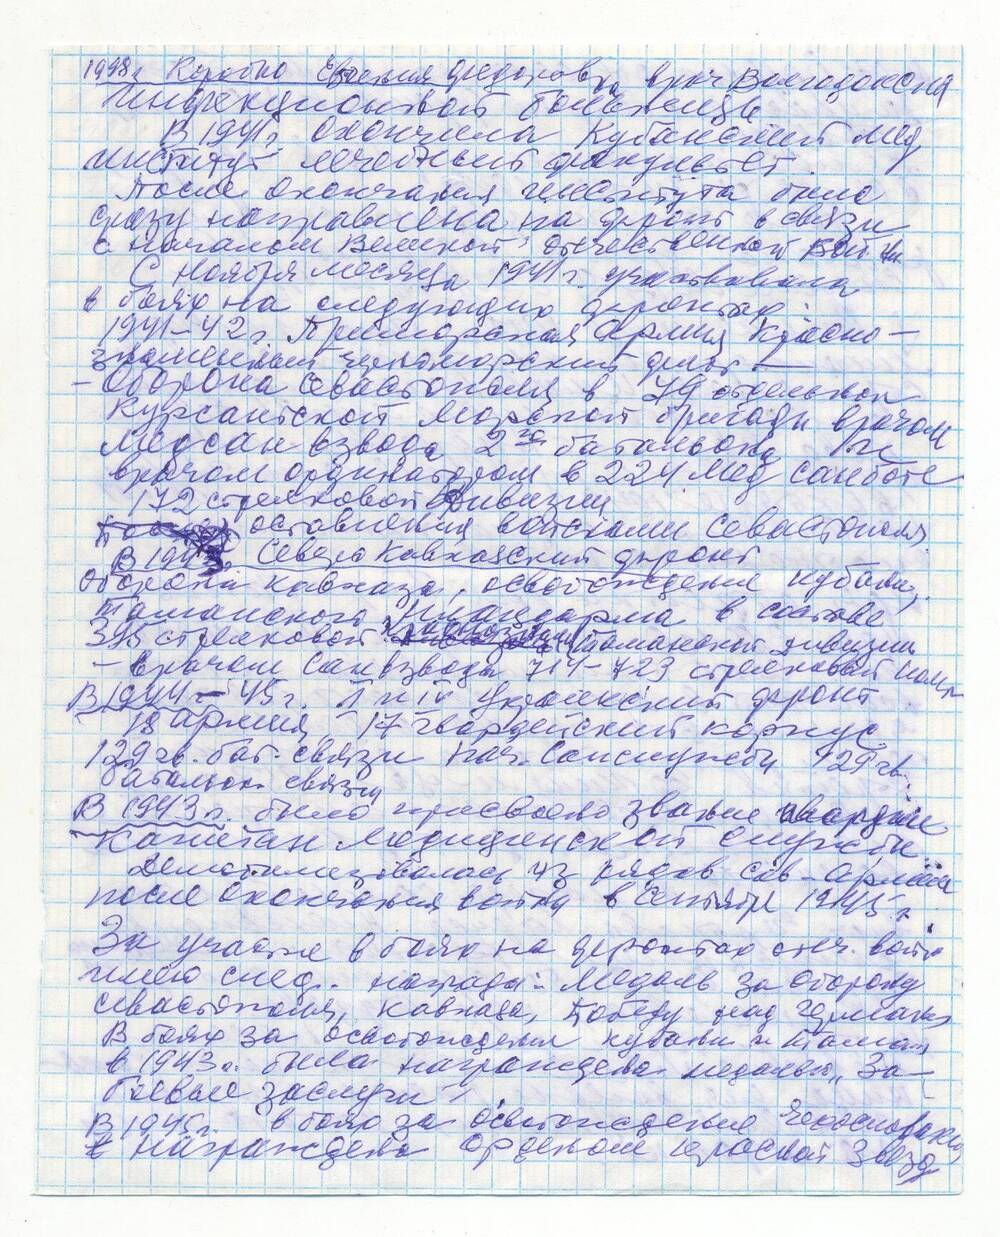 1998г. Коробко Евгения Федоровна врач Волгодонской
инфекционной больницы
В 1941г. окончила Кубанский мед
институт лечебный факультет.
После окончания института была
сразу направлена на фронт в связи
с началом Великой отечественной войны
С ноября месяца 1941г. участвовала
в боях на следующих фронтах
1941-42г. Приморская Армия Красно-
знаменный черноморский флот —
- Оборона Севастополя в 79 отдельной
Курсантской Морской бригады врачом
Медсан взвода 2го батальона и
врачом ординатором в 224 мед санбате
172 стрелковой дивизии
оставления войсками Севастополя
В 1943г. Северо Кавказский фронт
Оборона Кавказа, освобождение Кубани,
Таманского плацдарма в составе
395 стрелковой Таманской дивизии
- врачом Санвзвода 714-723 стрелковый полк
В 1944-45г. 1й Украинский фронт
18 армия - 17 гвардейский корпус
129 гв. бат. связи нач. Сан службы 129 гв.
батальон связи
В 1943г. было присвоено звание гвардии
Капитан медицинской службы.
Демобилизовалась из рядов Сов-Армии
после окончания войны в сентябре 1945г.
За участие в боях на фронтах отеч. войны
имею след. награды: Медаль за оборону
Севастополя, Кавказа, Победу над Германией
В боях за освобождение Кубани и Тамани
в 1943г. была награждена медалью „За-
боевые заслуги"
В 1945г. в боях за освобождение Чехословакии
награждена Орденом Красной Звезды